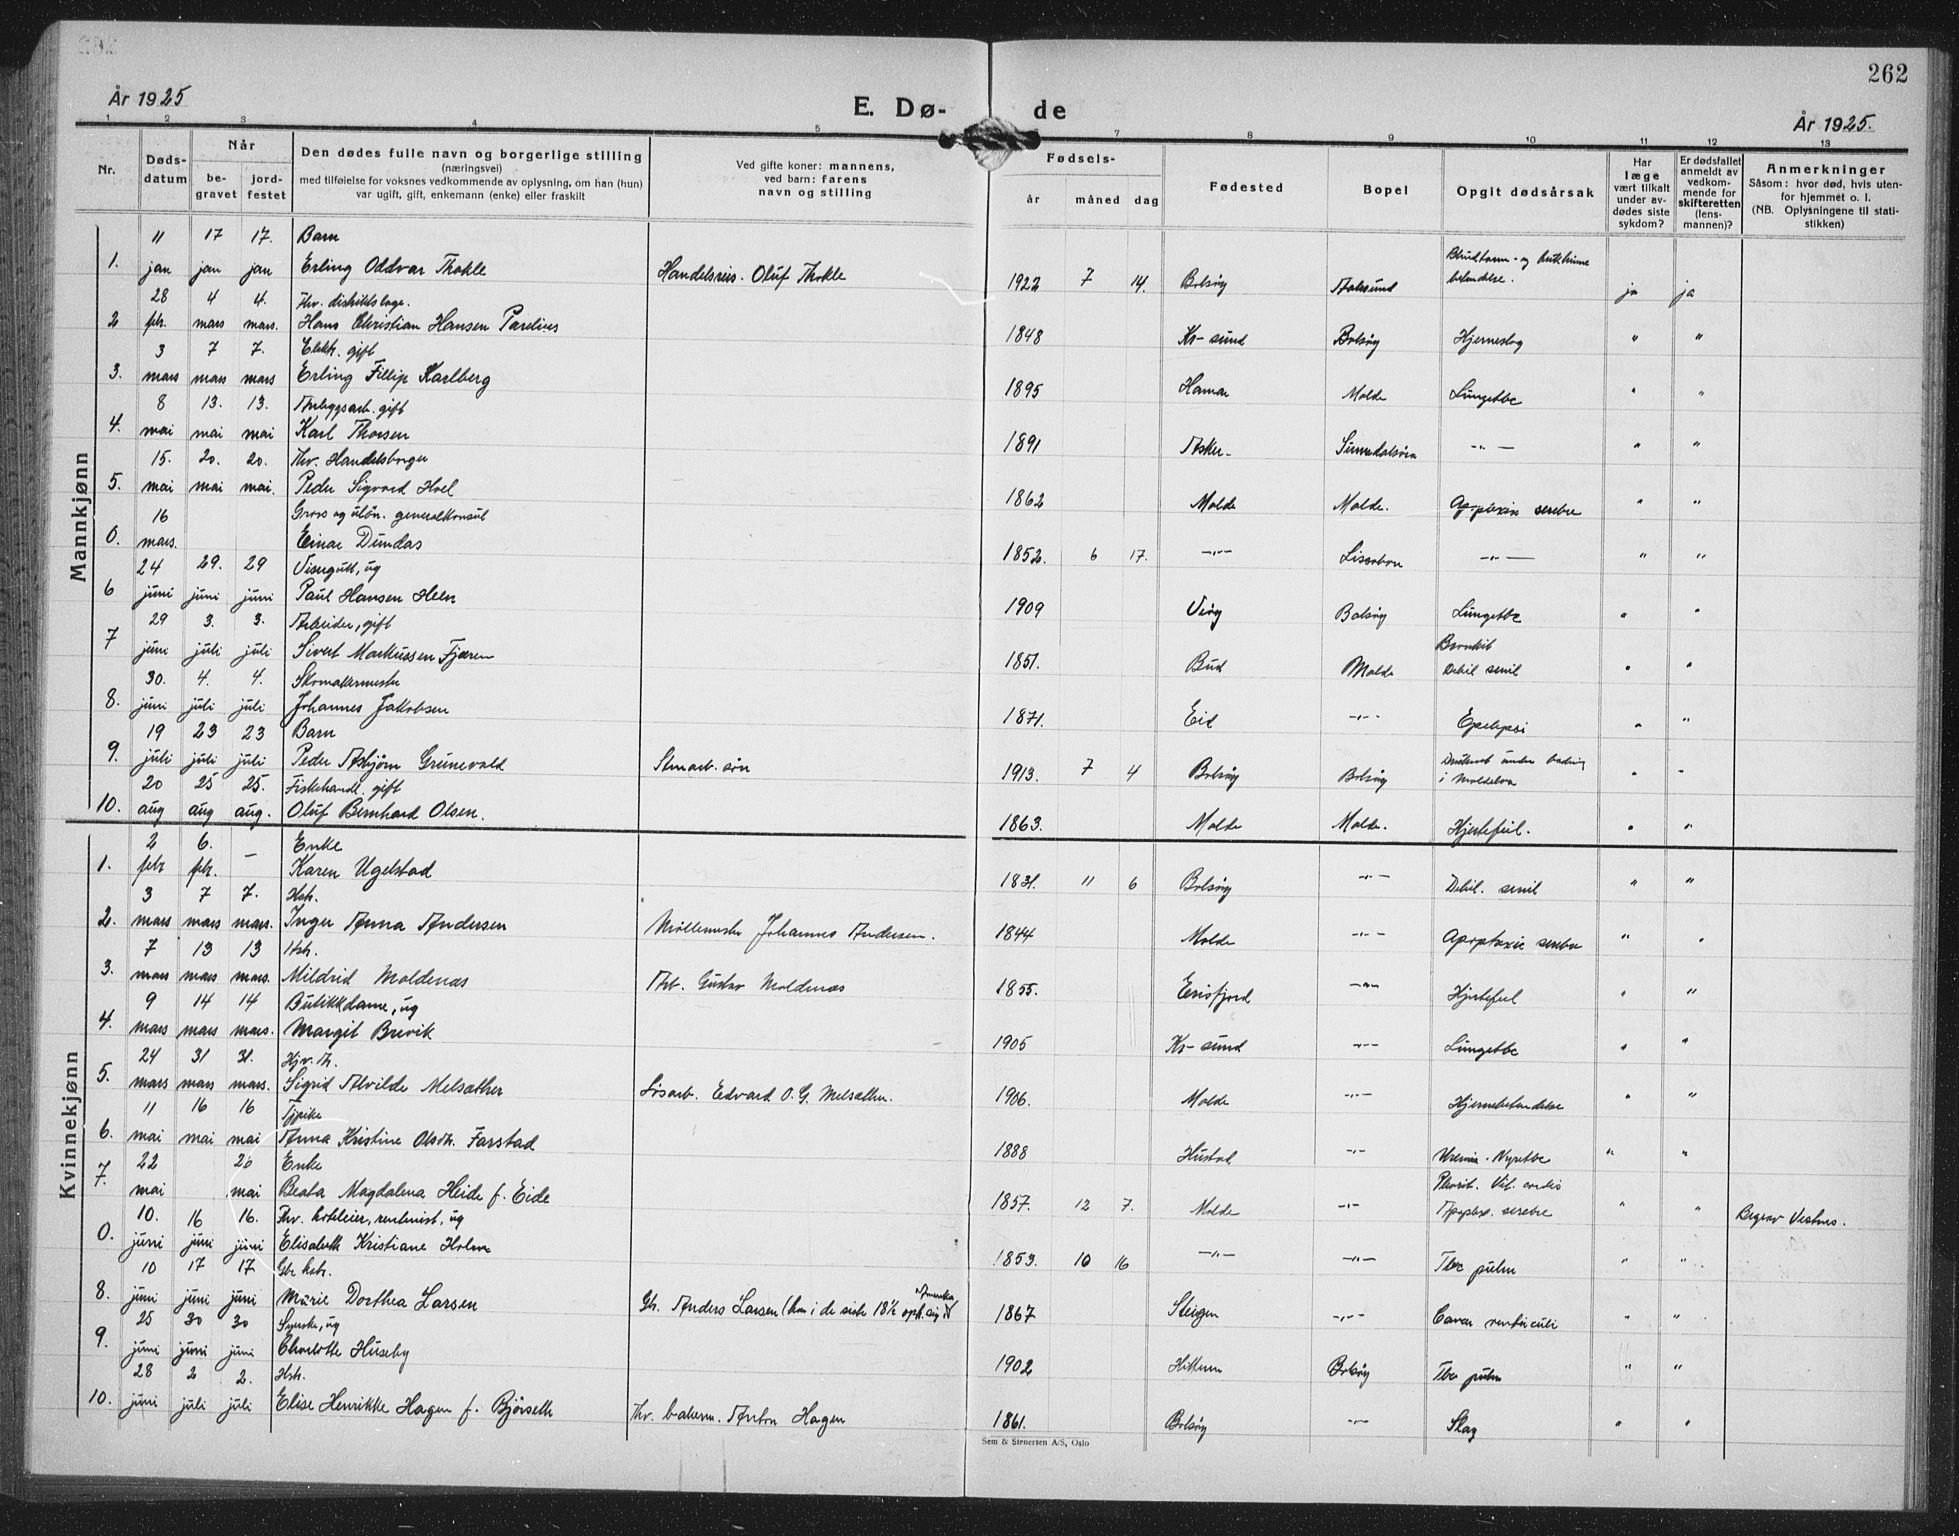 262
År 1925
E. Dø-
de
År 1925.
1 2 3 4 5 6 7 8 9 10 11 12 13
Nr.
Døds-
datum
Når
be-
gravet
jord-
festet
Den dødes fulle navn og borgerlige stilling
(næringsvei)
med tilføielse for voksnes vedkommende av oplysning, om han (hun)
var ugift, gift, enkemann (enke) eller fraskilt
Ved gifte koner: mannens,
ved barn: farens
navn og stilling
Fødsels-
år måned dag
Fødested
Bopel
Opgit dødsårsak
Har
læge
vært tilkalt
under av-
dødes siste
sykdom?
Er dødsfallet
anmeldt av
vedkom-
mende for
skifteretten
(lens-
mannen)?
Anmerkninger
Såsom: hvor død, hvis uten-
for hjemmet o. l.
(NB. Oplysningene til stati-
stikken)
Mannkjønn
11 17 17. Barn
1. jan jan jan Erling Oddvar Thokle Handelsreis. Oluf Thokle 1922 7 14. Bolsøy Aalesund betendelse. ja ja
28 4 4. Fhv. distriktslæge.
2 febr. mars mars. Hans Christian Hansen Parelius 1848 Kr-sund Bolsøy Hjerneslag " "
3 7 7. Elektr. gift
3. mars mars mars Erling Fillip Karlberg 1895 Hamar Molde Lungetbc " "
8 13. 13. Anleggsarb. gift
4. mai mai mai Karl Thorsen 1891 Asker Sunndalsøra -"- " "
15. 20. 20. Fhv. Handelsborger
5. mai mai mai. Peder Sigvard Hoel 1862 Molde Molde. Apoplexia serebri " "
16 Gross og uløn. generalkonsul
0. mars. Einar Dundas 1852. 6 17. -"- Lissabon -"- " "
24 29. 29 Visergutt, ug
6 juni juni juni Paul Hansen Heen 1909 Veøy Bolsøy Lungetbc " "
29 3. 3. Arbeider, gift Bronkit
7 juni juli juli Sivert Markussen Fjæren 1851. Bud Molde Debil senil " "
30. 4. 4. Skomakermester
8. juni juli juli Johannes Jakobsen 1871. Eid -"- Epelepsi " "
19 23 23 Barn Druknet under bading
9. juli juli juli Peder Asbjørn Grünevald Stenarb. søn 1913. 7 4 Bolsøy Bolsøy i Moldelva " "
20 25 25. Fiskehandl. gift
10. aug aug aug. Oluf Bernhard Olsen. 1863. Molde Molde. Hjertefeil. " "
Kvinnekjønn
2 6. Enke
1. febr febr. - Karen Ugelstad 1831. 11 6 Bolsøy -"- Debil. senil " "
3 7 7. Hstr.
2. mars mars mars. Inger Anna Andersen Møllemester Johannes Andersen. 1844 Molde -"- Apoplexie serebri " "
7 13 13 Hstr.
3. mars mars mars. Mildrid Moldenæs Arb. Gustav Moldenæs 1855. Eirisfjord -"- Hjertefeil " "
9 14 14 Butikkdame, ug
4. mars mars mars. Margit Brevik 1905 Kr-sund -"- Lungetbc " "
24 31 31. Hjv. th.
5. mars mars mars. Sigrid Alvilde Melsæther Løsarb. Edvard O. G. Melsæther. 1906. Molde -"- Hjernebetendelse " "
11 16 16 Tjpike
6. mai mai mai Anna Kristine Olsdtr. Farstad 1888 Hustad -"- Uremia. Nyretbc " "
22 26 Enke Vit. cordis
7. mai mai Beata Magdalena Heide f. Eide 1857. 12 7. Molde -"- Apoplex. serebre " " Begrav Vestnes.
10. 16 16. Fhv. hoteleier, rentenist, ug
0. juni juni juni Elisabeth Kristiane Holm 1853. 10 16 -"- -"- Tbc pulm " "
10 17 17 Gbr. hstr.
8. juni juni juni Marie Dorthea Larsen Gb. Anders Larsen (han i de siste 18 ½ opph. sig i Amerika) 1867 Steigen -"- Cancer ventriculi " "
25 30 30 Syerske, ug
9. juni juni juni Charlotte Huseby 1902 Hitteren Bolsøy Tbc pulm " "
28 2 2. Hstr.
10. juni juli juli Elise Henrikke Hagen f. Bjørseth Fhv. bakerm. Anton Hagen 1861. Bolsøy -"- Slag " "
Sem & Stenersen A/S, Oslo